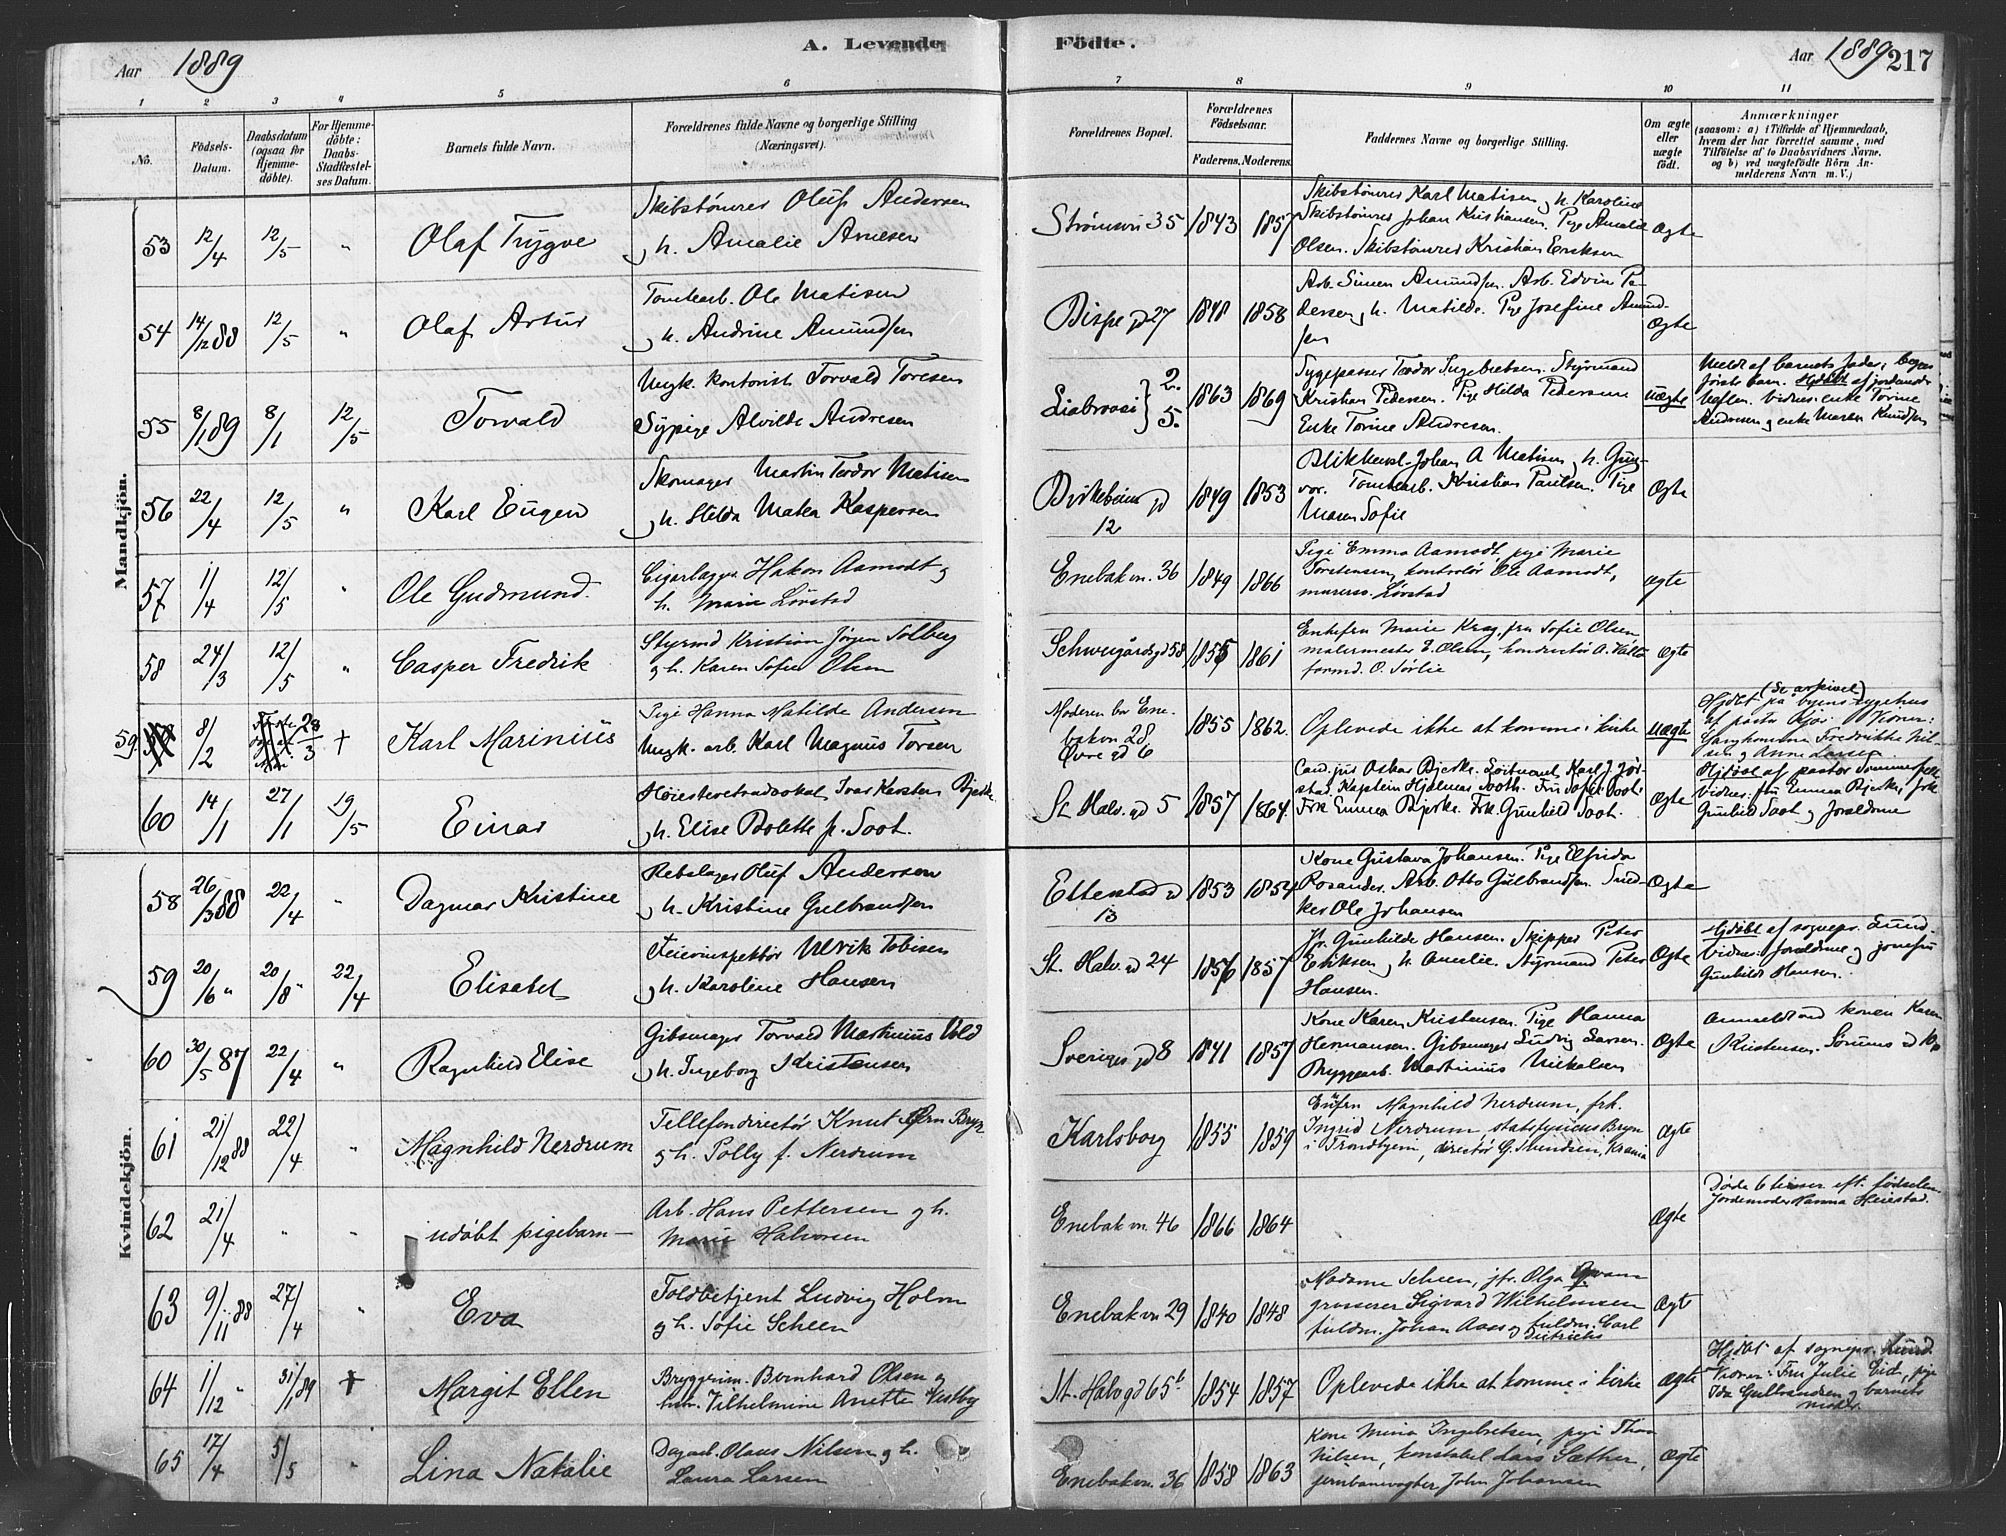 Aar 1889
A. Levende Födte.
Aar 1889 217
1 2 3 4 5 6 7 8 9 10 11
No.
Födsels-Datum.
Daabsdatum (ogsaa för Hjemme-döbte).
For Hjemme-döbte: Daabs-Stadfæstel-ses Datum.
Barnets fulde Navn.
Forældrenes fulde Navne og borgerlige Stilling (Næringsvei).
Forældrenes Bopæl.
Forældrenes Födselsaar.
Faderens. Moderens.
Faddernes Navne og borgerlige Stilling.
Om ægte eller uægte födt.
Anmærkninger
(saasom: a) i Tilfælde af Hjemmedaab, hvem der har forrettet samme, med Tilföielse af to Daabsvidners Navne, og b) ved uægtefödte Börn An-melderens Navn m. V.)
Mandkjön.
53 12/4 12/5 " Olaf Trygve
Skibstømres Oluf Andersen
og h. Amalie Arnesen
Strømsvn 35 1843 1857
Skibstømres Karl Matisen og h. Karoline
Skibstømres Johan Kristiansen. Pige Amalie
Olsen. Skibstømres Kristian Eriksen
Ægte
54 14/12 88 12/5 " Olaf Artur
Tomtearb. Ole Matisen
og h. Andrine Amundsen
Bispegd 27 1848 1858
Arb. Simen Amundsen. Arb. Edvin Pe-
dersen og h. Matilde. Pige Josefine Amund-
sen
Ægte
55 8/1 89 8/1 12/5 Torvald
Ungk. kontorist Torvald Toresen
Sypige Alvilde Andresen
Liabrovei 2. 5. 1863 1869
Sygepasser Teodor Ingebretsen. Styrmand
Kristian Pedersen. Pige Hilda Pedersen
Enke Torine Andresen.
Uægte
Meldt af barnets fader, begges
første barn. Hjdøbt af jordemoder
Vidnes: enke Torine
Andresen og enke Maren Knudsen
56 22/4 12/5 " Karl Eugen
Skomager Martin Teodor Matisen
og h. Hilda Matea Kaspersen
Birkebeinergd 12 1849 1853
Blikkensl. Johan A Matisen og h. Gun-
vor. Tomtearb. Kristian Paulsen. Pige
Maren Sofie
Ægte
57 1/4 12/5 " Ole Gudmund.
Cigarlager Hakon Aamodt og
h. Marie Løvstad
Enebakvn. 36 1849 1866
Pige Emma Aamodt, pige Marie
Torstensen, kontrolør Ole Aamodt,
murersv. Løvstad
ægte
58 24/3 12/5 " Casper Fredrik
Styrmd Kristian Jørgen Solberg
og h. Karen Sofie Olsen
Schweigårdsgd 58 1855 1861
Enkefru Marie Krag, fru Sofie Olsen
malermester E. Olsen, konduktør A.
formd. O. Sørlie
ægte
59 8/2 28/3 † Karl Marinius
Pige Hanna Matilde Andersen
Ungk. arb. Karl Magnus Torsen
Moderen bor Ene-
bakvn 28
Øvre gd 6
1855 1862.
Oplevede ikke at komme i kirke
Uægte
(Se arkivet)
Hjdøbt på byens sygehus
af pastor Koner:
Gangkonerne Fredrikke Nil-
sen og Anne Larsen
60 14/1 27/1 19/5 Einar
Høiesteretsadvokat Ivar Karsten Bjerke
og h. Elise Bolette f. Soot.
St Halv. gd 5 1857 1864.
Cand. jur Oskar Bjerke. Løitnant Karl J. Jør-
stad, Kaptein Hjalmar Sooth. Fru Sofie Soot.
Frk Emma Bjerke. Frk. Gunhild Soot.
Ægte
Hjdøbt af pastor Sommerfelt
Vidnes: fru Emma Bjerke, frk
Gunhild Soot og forældrene
Kvindekjön.
58 26/3 88 22/4 " Dagmar Kristine
Rebslager Oluf Andersen
og h. Kristine Gulbrandsen
Etterstad gd 13 1853 1854
Kone Gustava Johansen. Pige Elfrida
Rosander. Arb. Otto Gulbrandsen. Sned-
ker Ole Johansen
Ægte
59 20/6 " 20/8 " 22/4 Elisabet
Feierinspektør Ulrik Tobisen
og h. Karoline Hansen
St. Halv. gd 24 1856 1857
Jfr. Gunhilde Hansen. Skipper Peter
Eriksen og h. Amelie. Styrmand Peter
Hansen.
Ægte
Hjdøbt af sognepr. Lund.
Vidnes: forældrene og jomfru
Gunhild Hansen.
60 30/5 87 22/4 " Ragnhild Elise
Gibsmager Torvald Martinius Vold
og h. Ingeborg Kristensen
Sverigesgd 8 1841 1857
Kone Karen Kristensen. Pige Hanna
Hermansen. Gibsmager Ludvig Larsen.
Bryggearb. Martinius Mikalsen
Ægte
Anmeldt ved konen Karen
Kristensen. Sørums gd 10
61 21/12 88 22/4 " Magnhild Nerdrum
Tellefondirectør Knut Bryn
og h. Polly f. Nerdrum
Karlsborg 1855 1859
Magnhild Nerdrum, frk.
Ingrid Nerdrum stadsfysicus Bryn
i Trondhjem, director G. Krania
ægte
62 21/4 " " udøbt pigebarn —
Arb. Hans Pettersen og h.
Marie Halvorsen
Enebakvn. 46 1866 1864
Ægte
Døde 6 timer eft. fødselen
Jordemoder Hanna Heiestad.
63 9/11 88 27/4 " Eva
Toldbetjent Ludvig Holm
og h. Sofie Scheen
Enebakvn 29 1840 1848
Madame Scheen, jfr. Olga
grosserer Sigvard Wilhelmsen
fuldm. Johan Aas og fuldm. Carl
Dietrichs
Ægt
64 1/12 " 31/1 89 † Margit Ellen
Bryggerim. Bernhard Olsen og
hu. Vilhelmine Anette Vestby
St. Halvgd 65b 1854 1857
Oplevede ikke at komme i kirke
ægte
Hjdøbt af sognepr. Lund.
Koner: Fru Julie Eid, pige
Ida Gulbrandsen og barnets
moder.
65 17/4 5/5 " Lina Natalie
Dagarb. Olaus Nilsen og h.
Laura Larsen
Enebakvn. 36 1858 1863
Kone Mina Ingebretsen, pige Thea
Nilsen, konstabel Lars Sæther,
jernbanevogter John Johansen
Ægte